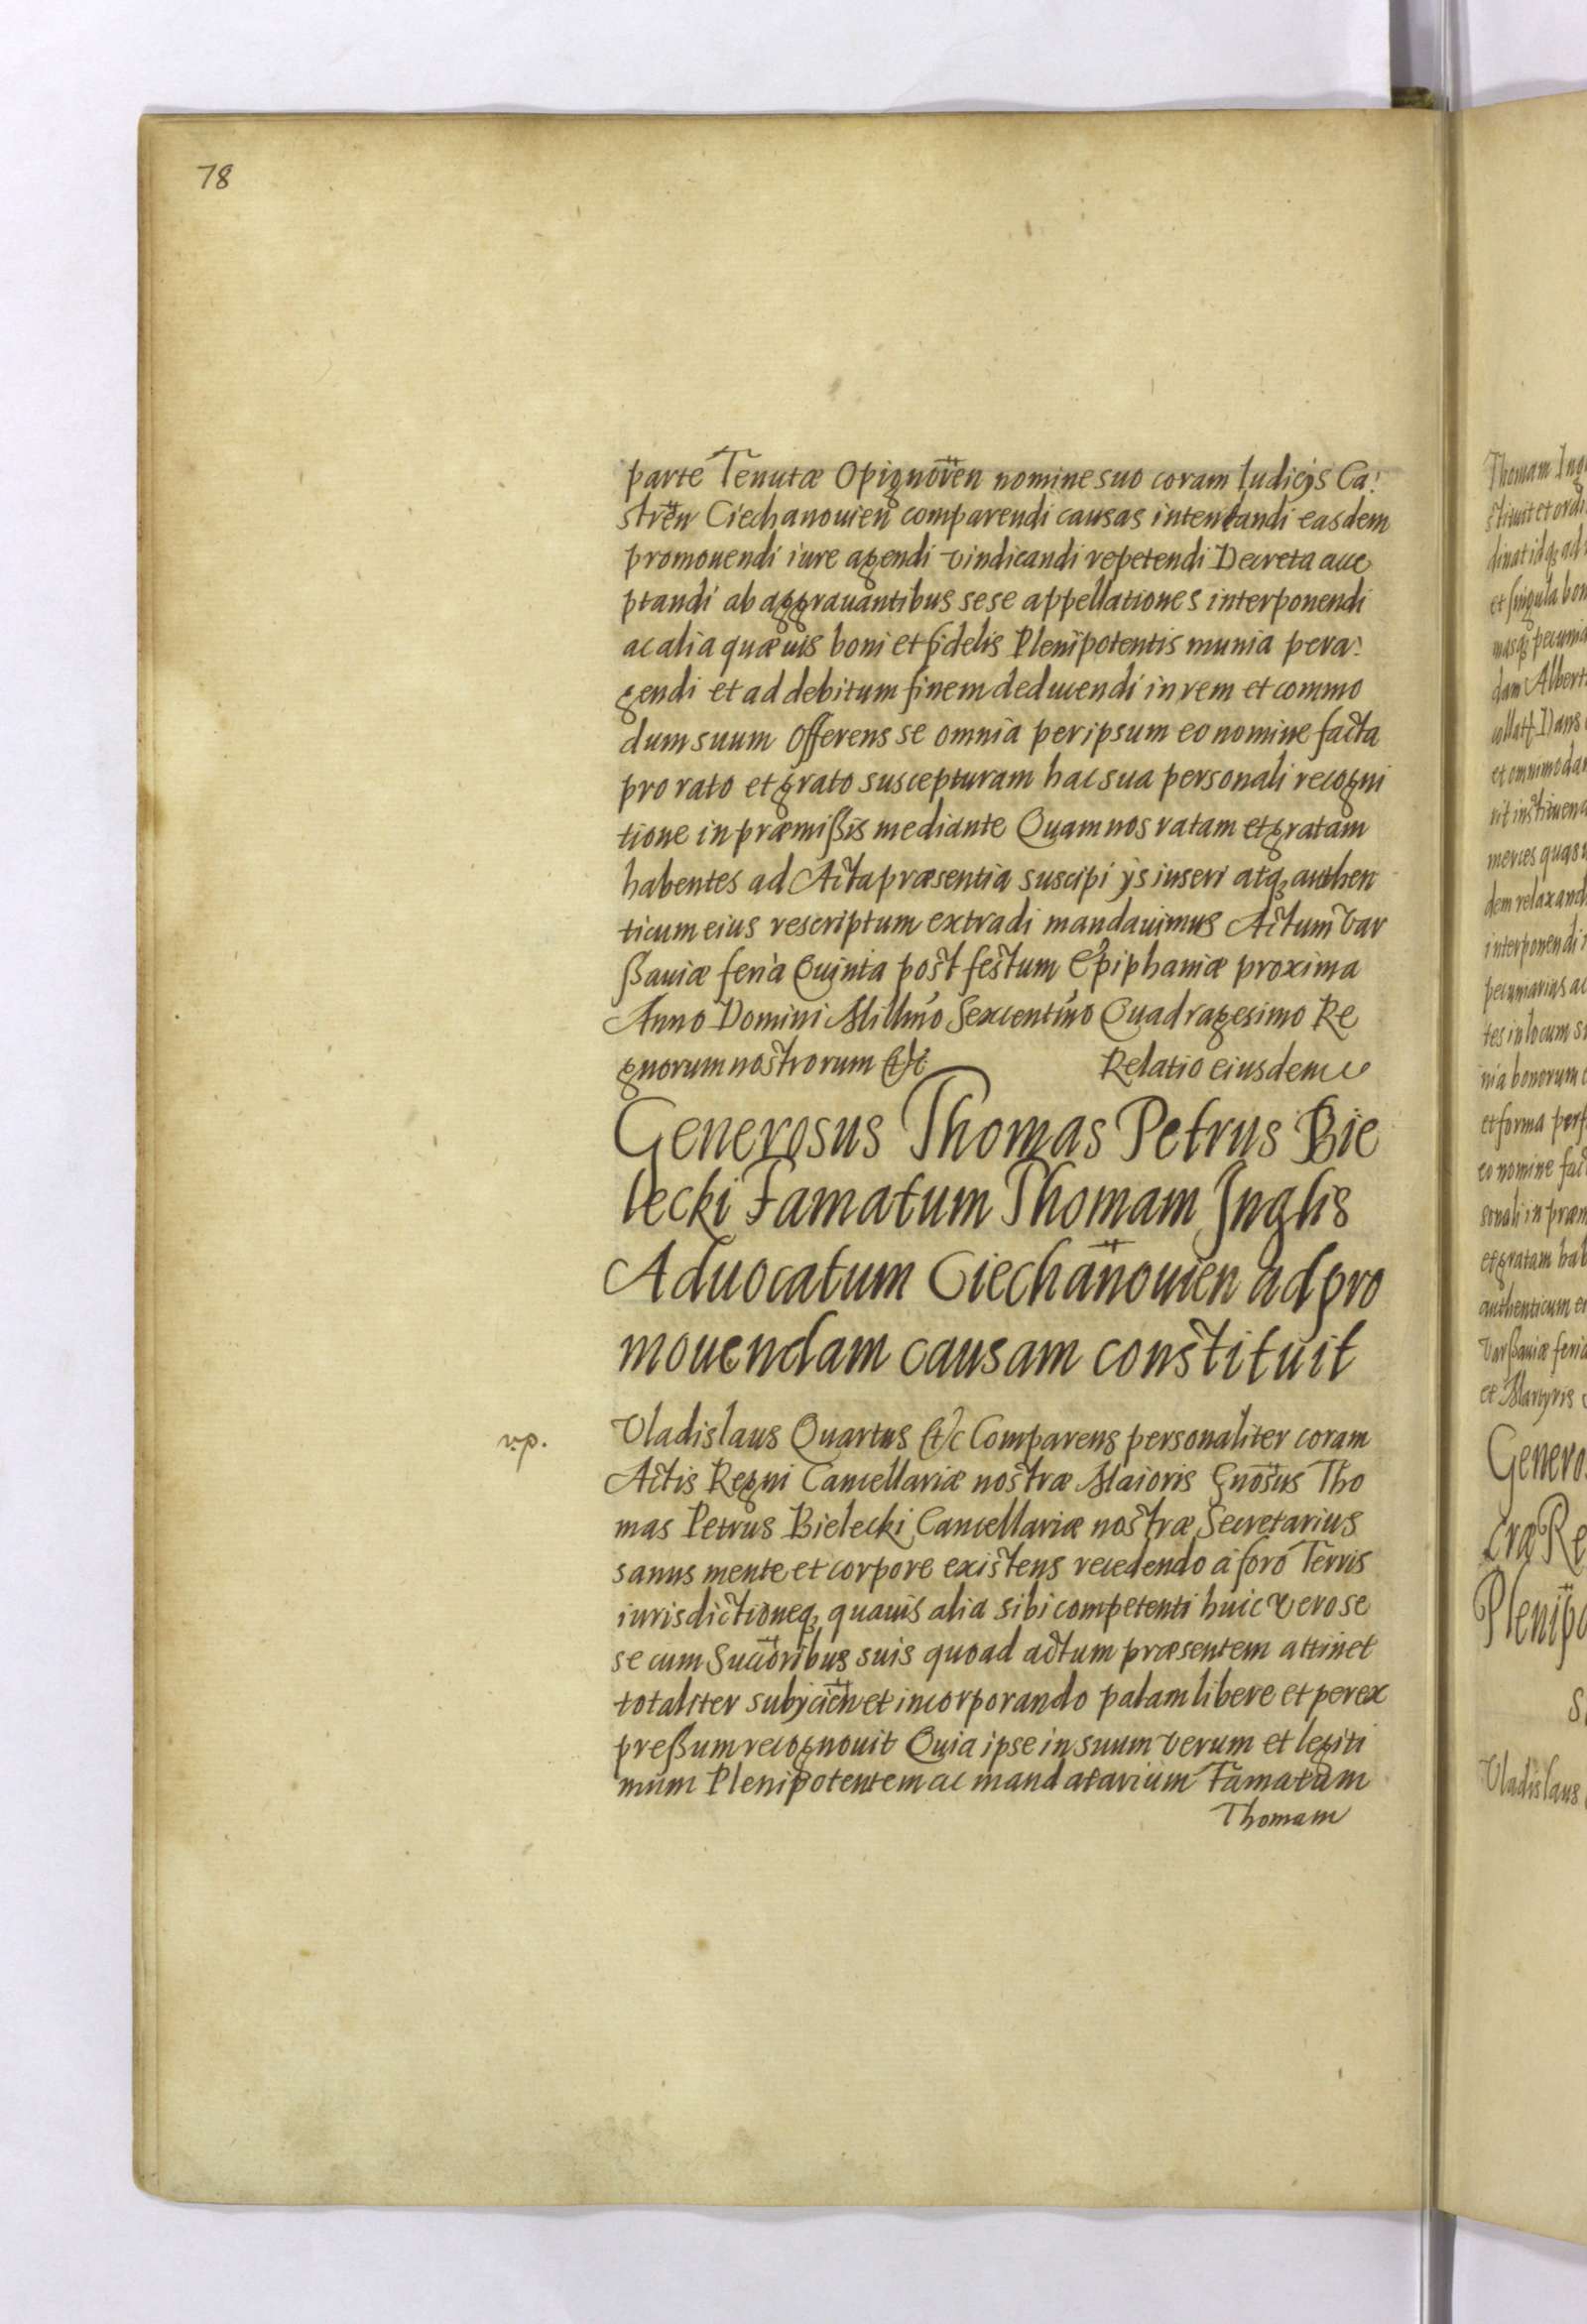 78
parte Tenutæ Opignoren̈ nomine suo coram Iudicijs Ca:
stren̈ Ciechanouien̈ comparendi causas intentandi easdem
promouendi iure agendi vindicandi repetendi Decreta acce
ptandi ab aggrauantibus sese appellationes interponendi
ac alia quæuis boni et fidelis Plenipotentis munia pera:
gendi et ad debitum finem deducendi in rem et commo
dum suum Offerens se omnia per ipsum eo nomine facta
pro rato et grato suscepturam hac sua personali recogni
tione in præmißis mediante Quam nos ratam et gratam
habentes ad Acta præsentia suscipi ijs inseri atq₃ authen
ticum eius rescriptum extradi mandauimus Actum Var
ßauiæ feria Quinta post festum Epiphaniæ proxima
Anno Domini Millmo Sexcentmo Quadragesimo Re
gnorum nostrorum etc Relatio eiusdem
Generosus Thomas Petrus Bie
lecki Famatum Thomam Inglis
Aduocatum Ciechanouien̈ ad pro
mouendam causam constituit
v.p.
Vladislaus Quartus etc Comparens personaliter coram
Actis Regni Cancellariæ nostræ Maioris Gnosus Tho
mas Petrus Bielecki Cancellariæ nostræ Secretarius
sanus mente et corpore existens recedendo à foro Terris
iurisdictioneq₃ quauis alia sibi competenti huic vero se
se cum Succoribus suis quoad actum præsentem attinet
totaliter subijcien̈ et incorporando palam libere et per ex
preßum recognouit Quia ipse in suum verum et legiti
mum Plenipotentem ac mandatarium Famatum
Thomam
Thomam Ing
et singula bon
dam Albert
dem relaxand
interponendi
pecuniarias ac
tes in locum s
nia bonorum
et forma per
eo nomine fac
sonali in præm
et gratam hab
authenticum e
Varßauiæ feria
et Martyris
Genero
cræ Re
Plenipo
S
Vladislaus